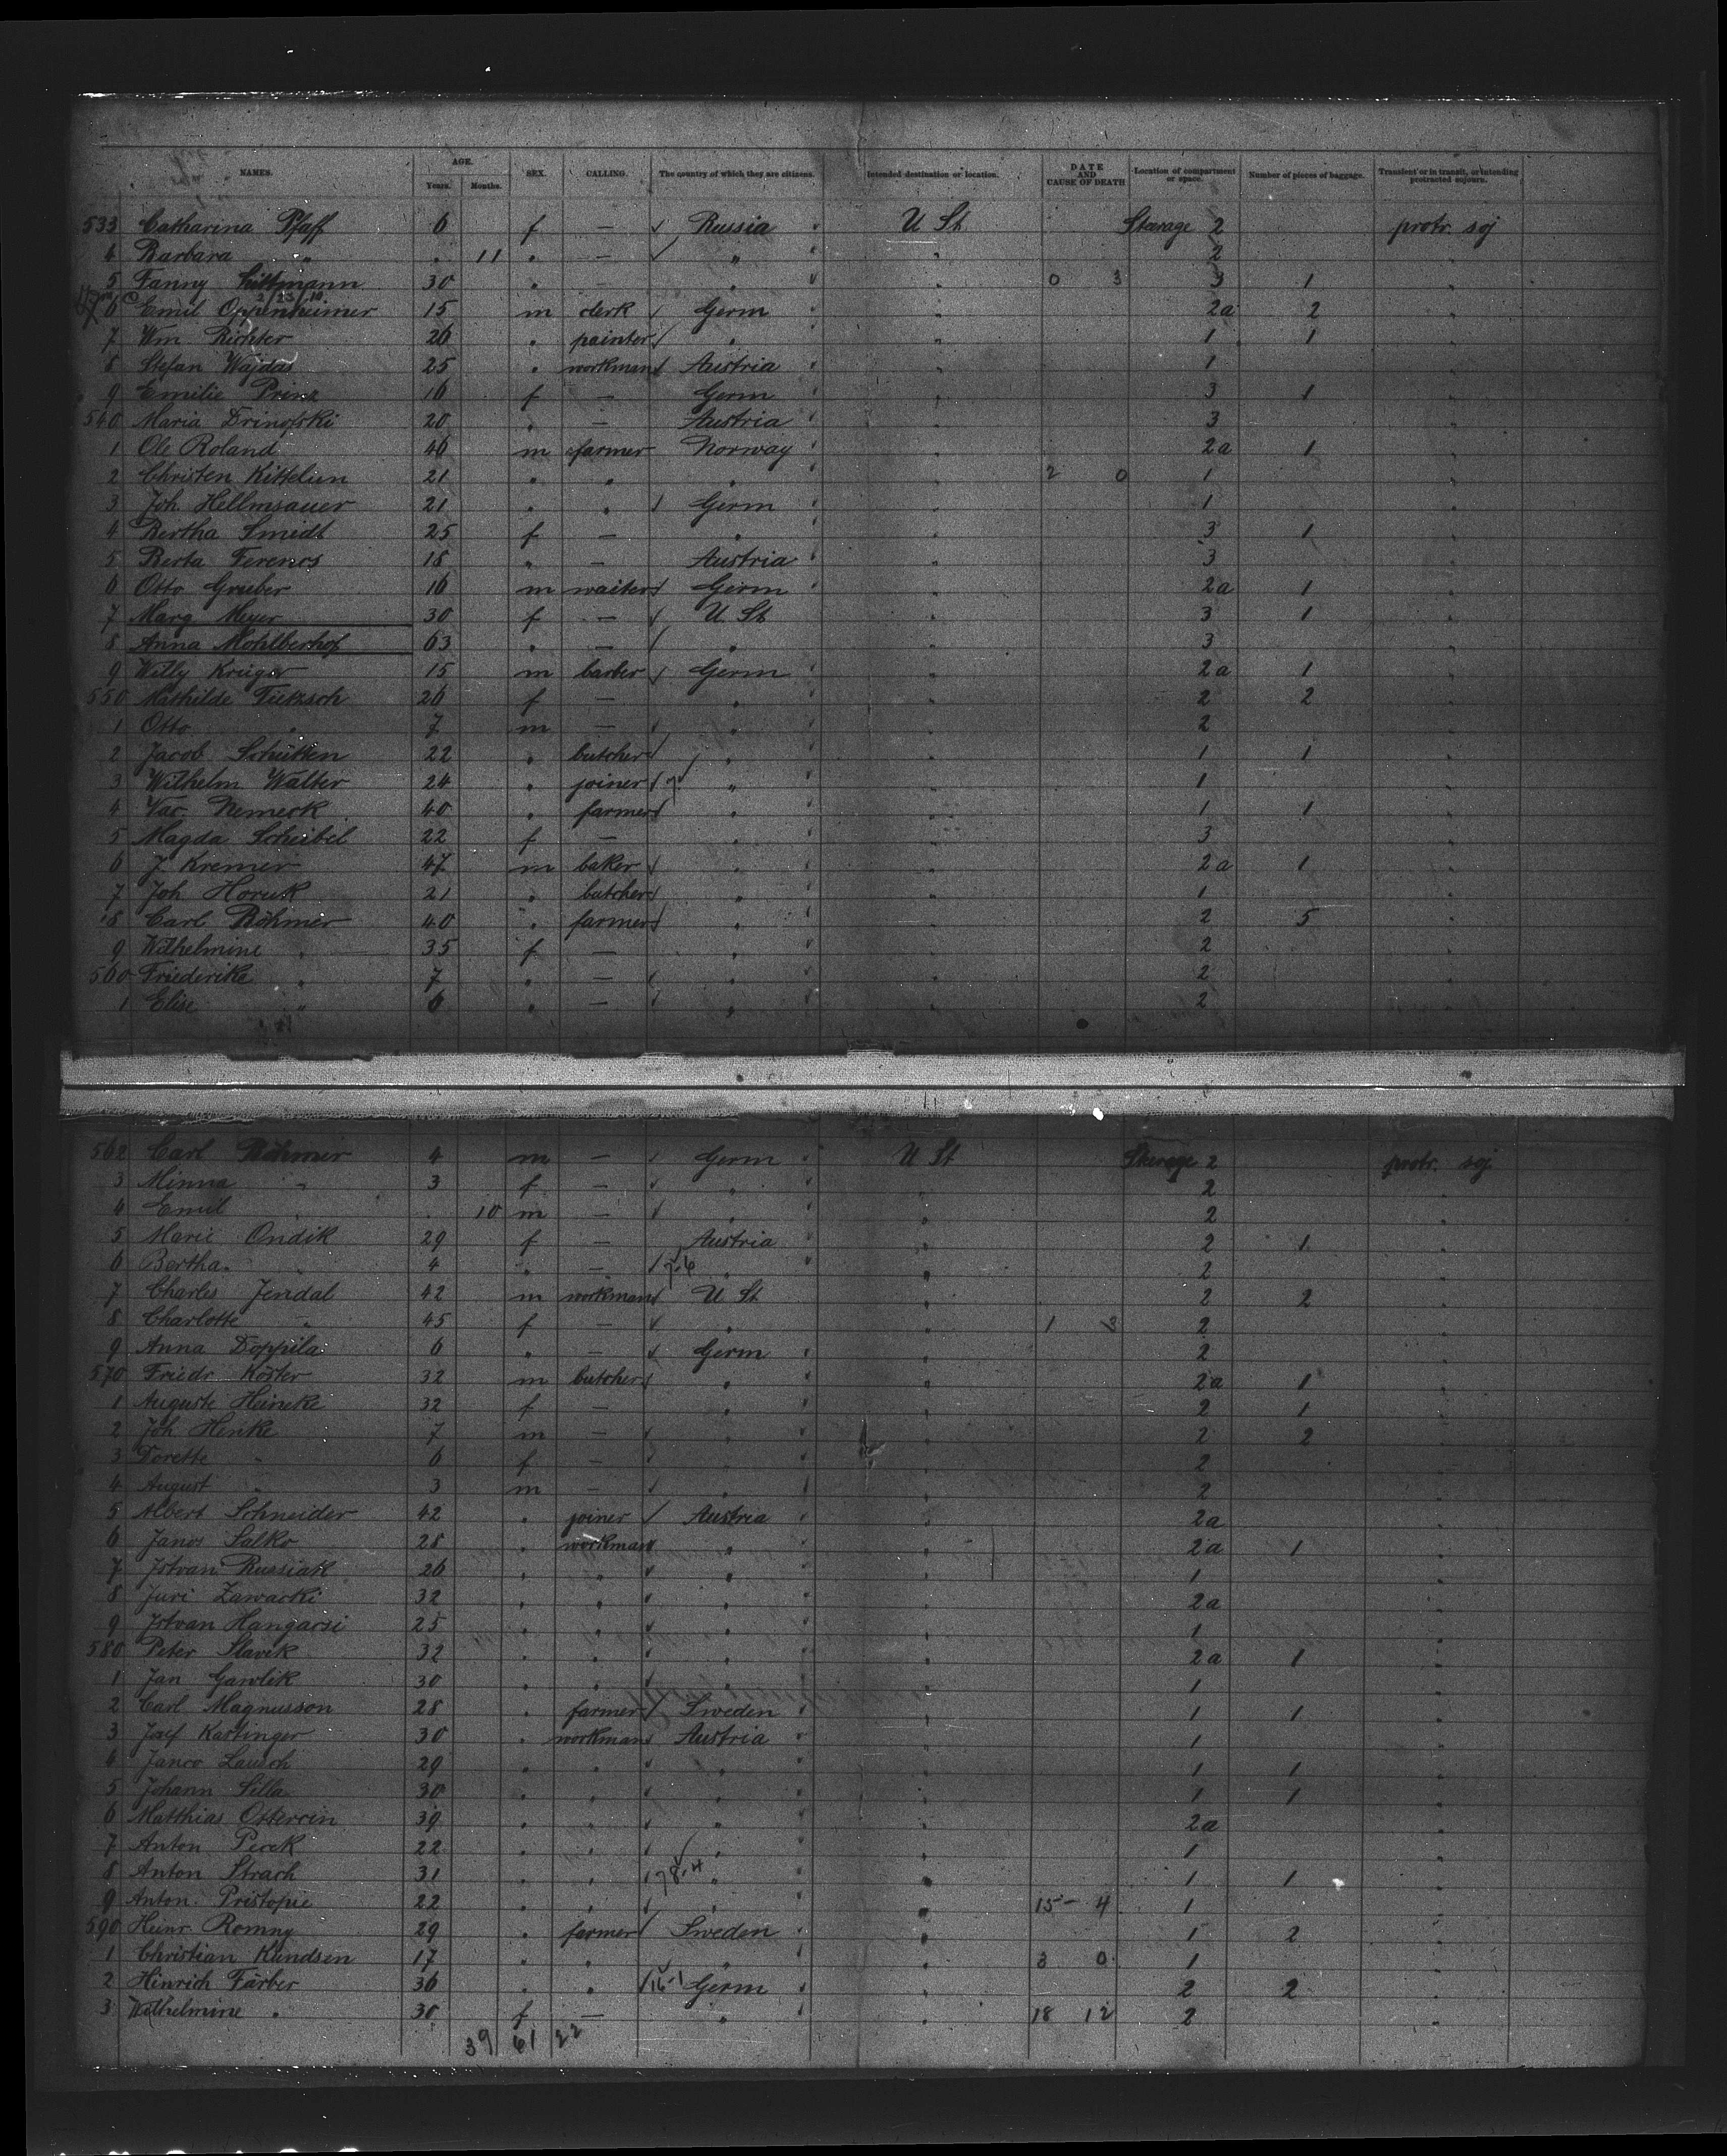 NAMES. AGE. Years. Months. SEX. CALLING. The country of which they are citizens. Intended destination or location. DATE AND CAUSE OF DEATH Location of compartment or space. Number of pieces of baggage. Transient or in transit, or intending protracted sojourn.
533 Catharina Pfaff 6 f — Russia U St Steerage 2 protr. soj
4 Barbara " . 11 " — " " 2
5 Fanny 30 " — " " 0 3 3 1
2/23/10
6 Emil Oppenheimer 15 m clerk Germ " 2a 2
7 Wm Richter 26 " painter " " 1 1
8 Stefan Wajdas 25 " workman Austria " 1
9 Emilie Prinz 16 f — Germ " 3 1
540 Maria 20 " — Austria " 3
1 Ole Roland 46 m farmer Norway " 2a 1
2 Christen 21 " " " " 2 0 1
3 Joh. Hellmsauer 21 " " Germ " 1
4 Bertha Smidt 25 f — " " 3 1
5 Berta Ferencs 18 " — Austria " 3
6 Otto Gruber 16 m waiter Germ " 2a 1
7 Marg Meyer 30 f — U. St " 3 1
8 Anna Mohlberhof 63 " — " " 3
9 Willy Krüger 15 m barber Germ " 2a 1
550 Mathilde Tietzsch 26 f — " " 2 2
1 Otto " 7 m — " " 2
2 Jacob Schütten 22 " butcher " " 1 1
3 Wilhelm Walter 24 " joiner " " 1
4 Vac. Nemeck 40 " farmer " " 1 1
5 Magda Scheibel 22 f — " " 3
6 J. Kremer 47 m baker " " 2a 1
7 Joh. Horuk 21 " butcher " " 1
8 Carl Böhmer 40 " farmer " " 2 5
9 Wilhelmine " 35 f — " " 2
560 Friederike " 7 " — " " 2
1 Elise " 6 " — " " 2
562 Carl Böhmer 4 m — Germ U St Steerage 2 protr. soj
3 Minna " 3 f — " " 2
4 Emil " . 10 m — " " 2
5 Marie Ondik 29 f — Austria " 2 1
6 Bertha " 4 " — " " 2
7 Charles Jendal 42 m workman U. St " 2 2
8 Charlotte " 45 f — " " 1 3 2
9 Anna Doppila 6 " — Germ " 2
570 Friedr. Köster 32 m butcher " " 2a 1
1 Auguste Heineke 32 f — " " 2 1
2 Joh Henke 7 m — " " 2 2
3 Dorette " 6 f — " " 2
4 August " 3 m — " " 2
5 Albert Schneider 42 " joiner Austria " 2a
6 Janos Salko 28 " workman " " 2a 1
7 Istvan Russiak 26 " " " " 1
8 Juri Zawacki 32 " " " " 2a
9 Istvan Hangarsi 25 " " " " 1
580 Peter Slavik 32 " " " " 2a 1
1 Jan Gawlik 30 " " " " 1
2 Carl Magnusson 28 " farmer Sweden " 1 1
3 Josef Kastinger 30 " workman Austria " 1
4 Janco Lausch 29 " " " " 1 1
5 Johann Silla 30 " " " " 1 1
6 Matthias 39 " " " " 2a
7 Anton Perek 22 " " " " 1
8 Anton Strach 31 " " " " 1 1
9 Anton Pristopie 22 " " " " 15 - 4 1
590 Heinr. Romny 29 " farmer Sweden " 1 2
1 Christian Kundsen 17 " " " " 3 0 1
2 Hinrich Färber 36 " " 16-1 Germ " 2 2
3 Wilhelmine " 30 f — " " 18 12 2
39 61 22